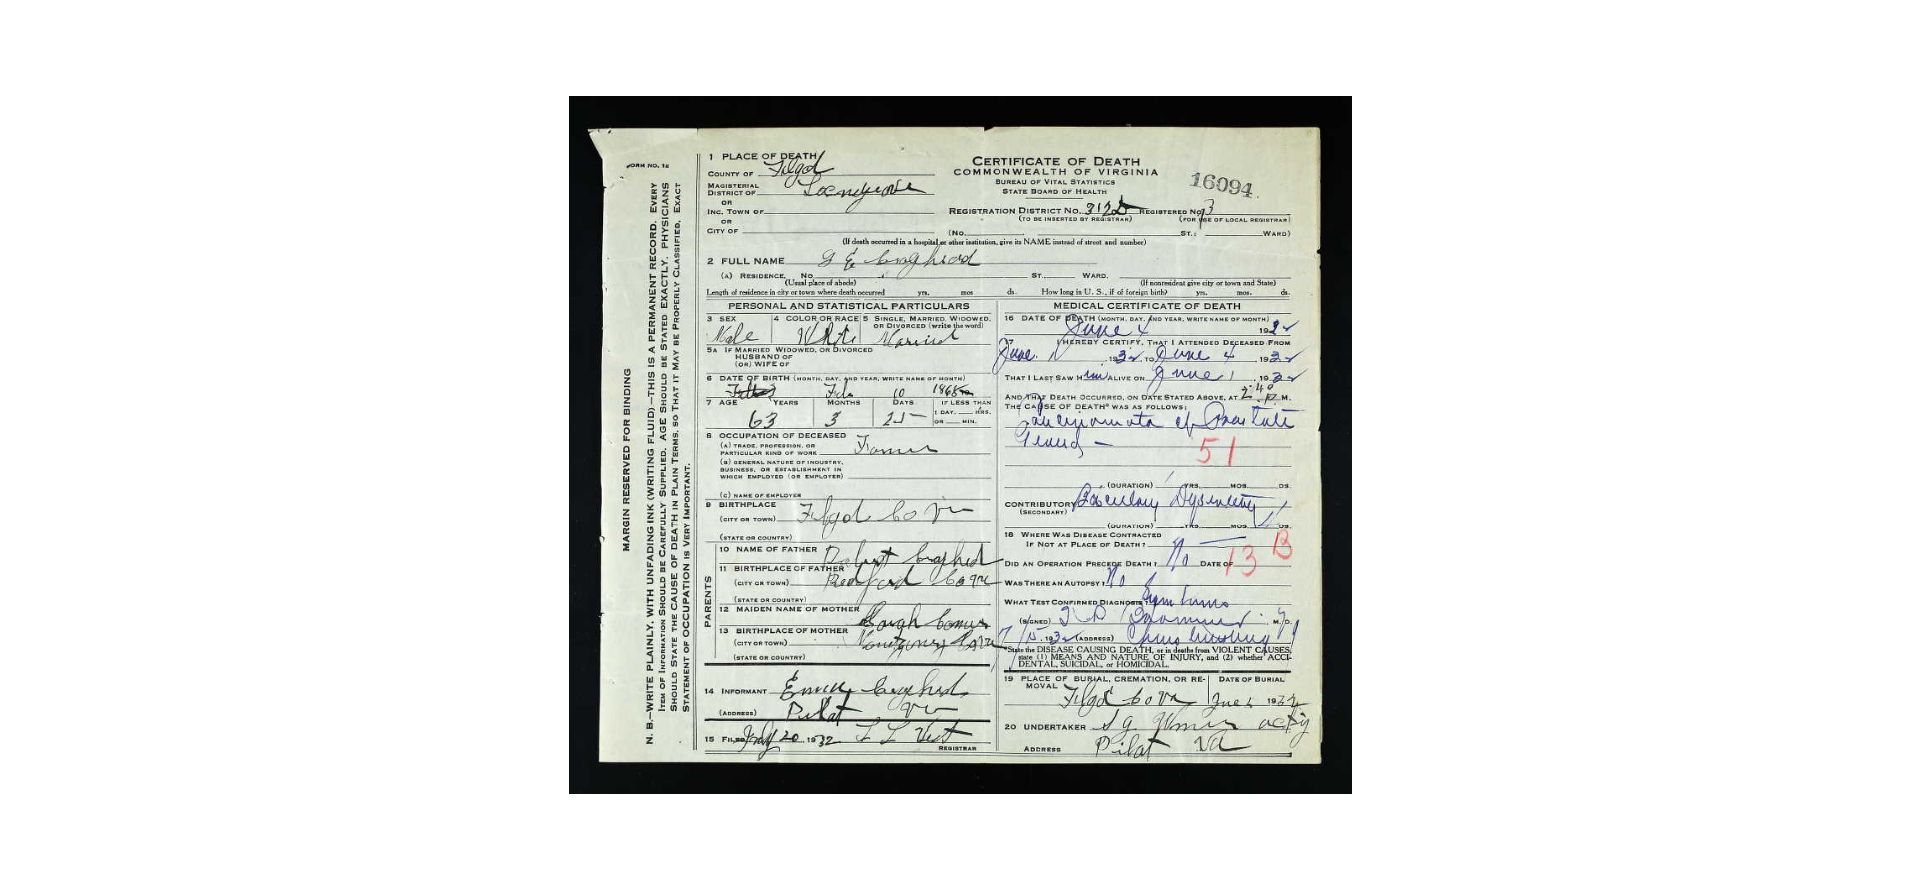 FORM NO. 12
MARGIN RESERVED FOR BINDING
N. B.—WRITE PLAINLY, WITH UNFADING INK (WRITING FLUID).—THIS IS A PERMANENT RECORD. EVERY
ITEM OF INFORMATION SHOULD BE CAREFULLY SUPPLIED. AGE SHOULD BE STATED EXACTLY. PHYSICIANS
SHOULD STATE THE CAUSE OF DEATH IN PLAIN TERMS, SO THAT IT MAY BE PROPERLY CLASSIFIED. EXACT
STATEMENT OF OCCUPATION IS VERY IMPORTANT.
1 PLACE OF DEATH
COUNTY OF Floyd
MAGISTERIAL
DISTRICT OF
OR
INC. TOWN OF
OR
CITY OF
CERTIFICATE OF DEATH
COMMONWEALTH OF VIRGINIA
BUREAU OF VITAL STATISTICS
STATE BOARD OF HEALTH
16094
REGISTRATION DISTRICT NO. 312D REGISTERED NO.
(TO BE INSERTED BY REGISTRAR) (FOR USE OF LOCAL REGISTRAR)
(NO. ST.; WARD)
(If death occurred in a hospital or other institution, give its NAME instead of street and number)
2 FULL NAME G E
(A) RESIDENCE, NO. ST. WARD.
(Usual place of abode) (If nonresident give city or town and State)
Length of residence in city or town where death occurred yrs. mos. ds. How long in U. S., if of foreign birth? yrs. mos. ds.
PERSONAL AND STATISTICAL PARTICULARS
3 SEX 4 COLOR OR RACE 5 SINGLE, MARRIED, WIDOWED,
OR DIVORCED (write the word)
Male White Married
5A IF MARRIED WIDOWED, OR DIVORCED
HUSBAND OF
(OR) WIFE OF
6 DATE OF BIRTH (MONTH, DAY, AND YEAR, WRITE NAME OF MONTH)
Feb 10 1868
7 AGE YEARS MONTHS DAYS IF LESS THAN
1 DAY, HRS.
OR MIN.
63 3 25
8 OCCUPATION OF DECEASED
(A) TRADE, PROFESSION, OR
PARTICULAR KIND OF WORK Farmer
(B) GENERAL NATURE OF INDUSTRY,
BUSINESS, OR ESTABLISHMENT IN
WHICH EMPLOYED (OR EMPLOYER)
(C) NAME OF EMPLOYER
9 BIRTHPLACE
(CITY OR TOWN) Floyd Co
(STATE OR COUNTRY)
PARENTS
10 NAME OF FATHER
11 BIRTHPLACE OF FATHER
(CITY OR TOWN)
(STATE OR COUNTRY)
12 MAIDEN NAME OF MOTHER Sarah
13 BIRTHPLACE OF MOTHER
(CITY OR TOWN)
(STATE OR COUNTRY)
14 INFORMANT
(ADDRESS) Pilot
15 FILED July 20 1932 Vest
REGISTRAR
MEDICAL CERTIFICATE OF DEATH
16 DATE OF DEATH (MONTH, DAY, AND YEAR, WRITE NAME OF MONTH)
June 4 1932
17 I HEREBY CERTIFY, THAT I ATTENDED DECEASED FROM
June 1932 TO June 4 1932
THAT I LAST SAW HIM ALIVE ON June 1 1932
AND THAT DEATH OCCURRED, ON DATE STATED ABOVE, AT 2:40 P. M.
THE CAUSE OF DEATH* WAS AS FOLLOWS:
Carcinomata of Prostate
Gland —
51
(DURATION) YRS. MOS. DS.
CONTRIBUTORY Bacillary Dysentery
(SECONDARY)
(DURATION) YRS. MOS. DS.
18 WHERE WAS DISEASE CONTRACTED
IF NOT AT PLACE OF DEATH?
13 B
DID AN OPERATION PRECEDE DEATH? No DATE OF
WAS THERE AN AUTOPSY? No
WHAT TEST CONFIRMED DIAGNOSIS? Symptoms
(SIGNED) M. D.
1932 (ADDRESS) Christiansburg
*State the DISEASE CAUSING DEATH, or in deaths from VIOLENT CAUSES,
state (1) MEANS AND NATURE OF INJURY, and (2) whether ACCI-
DENTAL, SUICIDAL, or HOMICIDAL.
19 PLACE OF BURIAL, CREMATION, OR RE-
MOVAL DATE OF BURIAL
Floyd Co Va June 1932
20 UNDERTAKER
ADDRESS Pilot Va